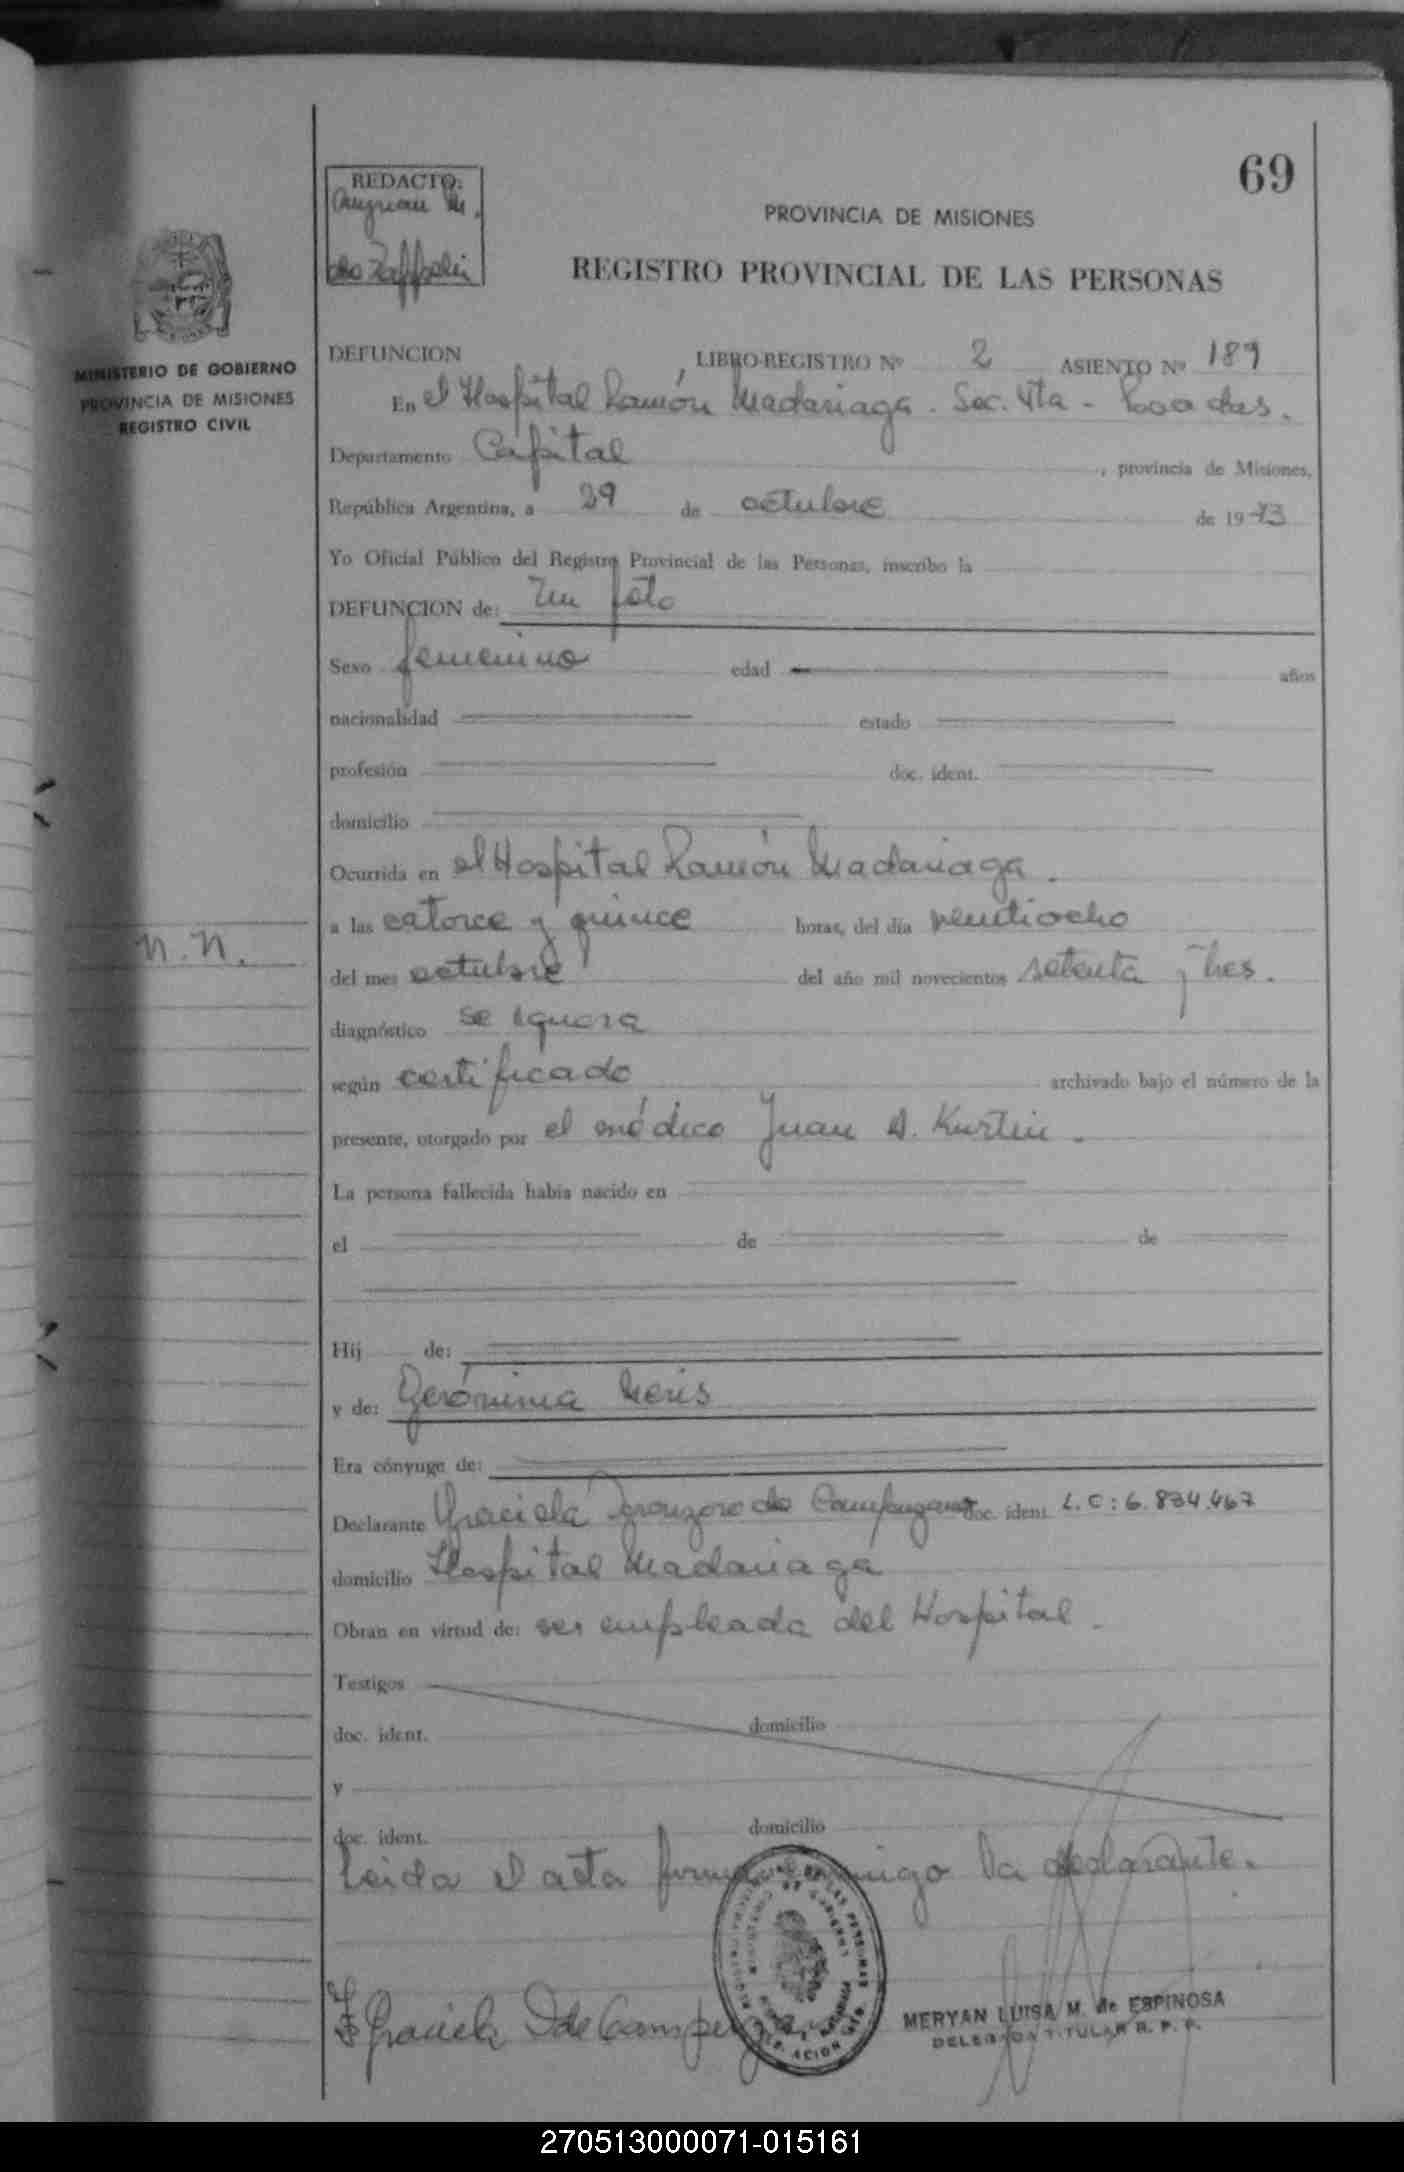 69
REDACTO:
PROVINCIA DE MISIONES
REGISTRO PROVINCIAL DE LAS PERSONAS
MINISTERIO DE GOBIERNO
PROVINCIA DE MISIONES
REGISTRO CIVIL
DEFUNCION , LIBRO-REGISTRO Nº 2 ASIENTO Nº 189
En el Hospital Ramón Madariaga. Sec. Vta - Posadas.
Departamento Capital , provincia de Misiones,
República Argentina, a 29 de octubre de 1973
Yo Oficial Público del Registro Provincial de las Personas, inscribo la
DEFUNCION de: Un feto
Sexo femenino edad años
nacionalidad estado
profesión doc. ident.
domicilio
Ocurrida en el Hospital Ramón Madariaga.
a las catorce y quince horas, del día veintiocho
N.N.
del mes octubre del año mil novecientos setenta y tres.
diagnóstico se ignora
según certificado archivado bajo el número de la
presente, otorgado por el médico Juan A. Kurtin.
La persona fallecida había nacido en
el de de
Hij de:
y de: Gerónima Neris
Era cónyuge de:
Declarante Graciela de doc. ident. L.C: 6.834.467
domicilio Hospital Madariaga
Obran en virtud de: ser empleada del Hospital.
Testigos
doc. ident. domicilio
y
doc. ident. domicilio
Leida el acta la declarante.
MERYAN LUISA M. de ESPINOSA
DELEGADA TITULAR R. P. P.
270513000071-015161